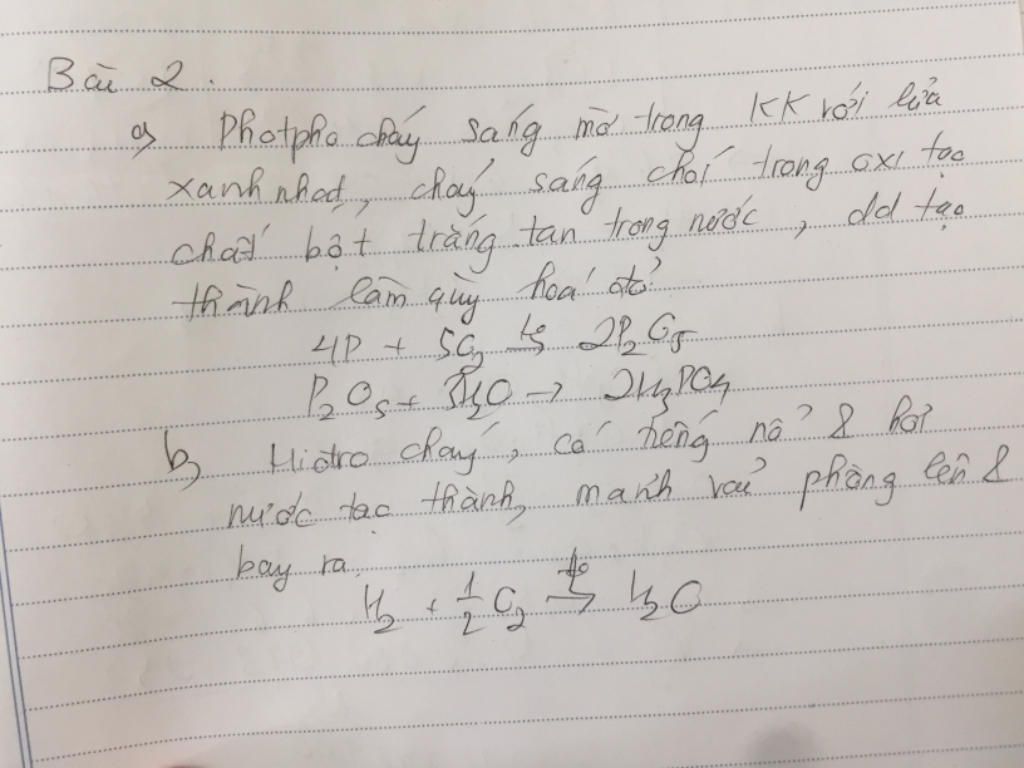 Bài 2.
a, Photpho cháy sáng mờ trong KK với lửa
xanh nhạt, cháy sáng chói trong oxi tạo
chất bột trắng tan trong nước, dd tạo
thành làm quỳ hoá đỏ
4P + 5O₂ →(t°) 2P₂O₅
P₂O₅ + 3H₂O → 2H₃PO₄
b, Hiđro cháy, có tiếng nổ & hơi
nước tạo thành, mảnh vải phồng lên &
bay ra.
H₂ + 1/2 O₂ →(t°) H₂O